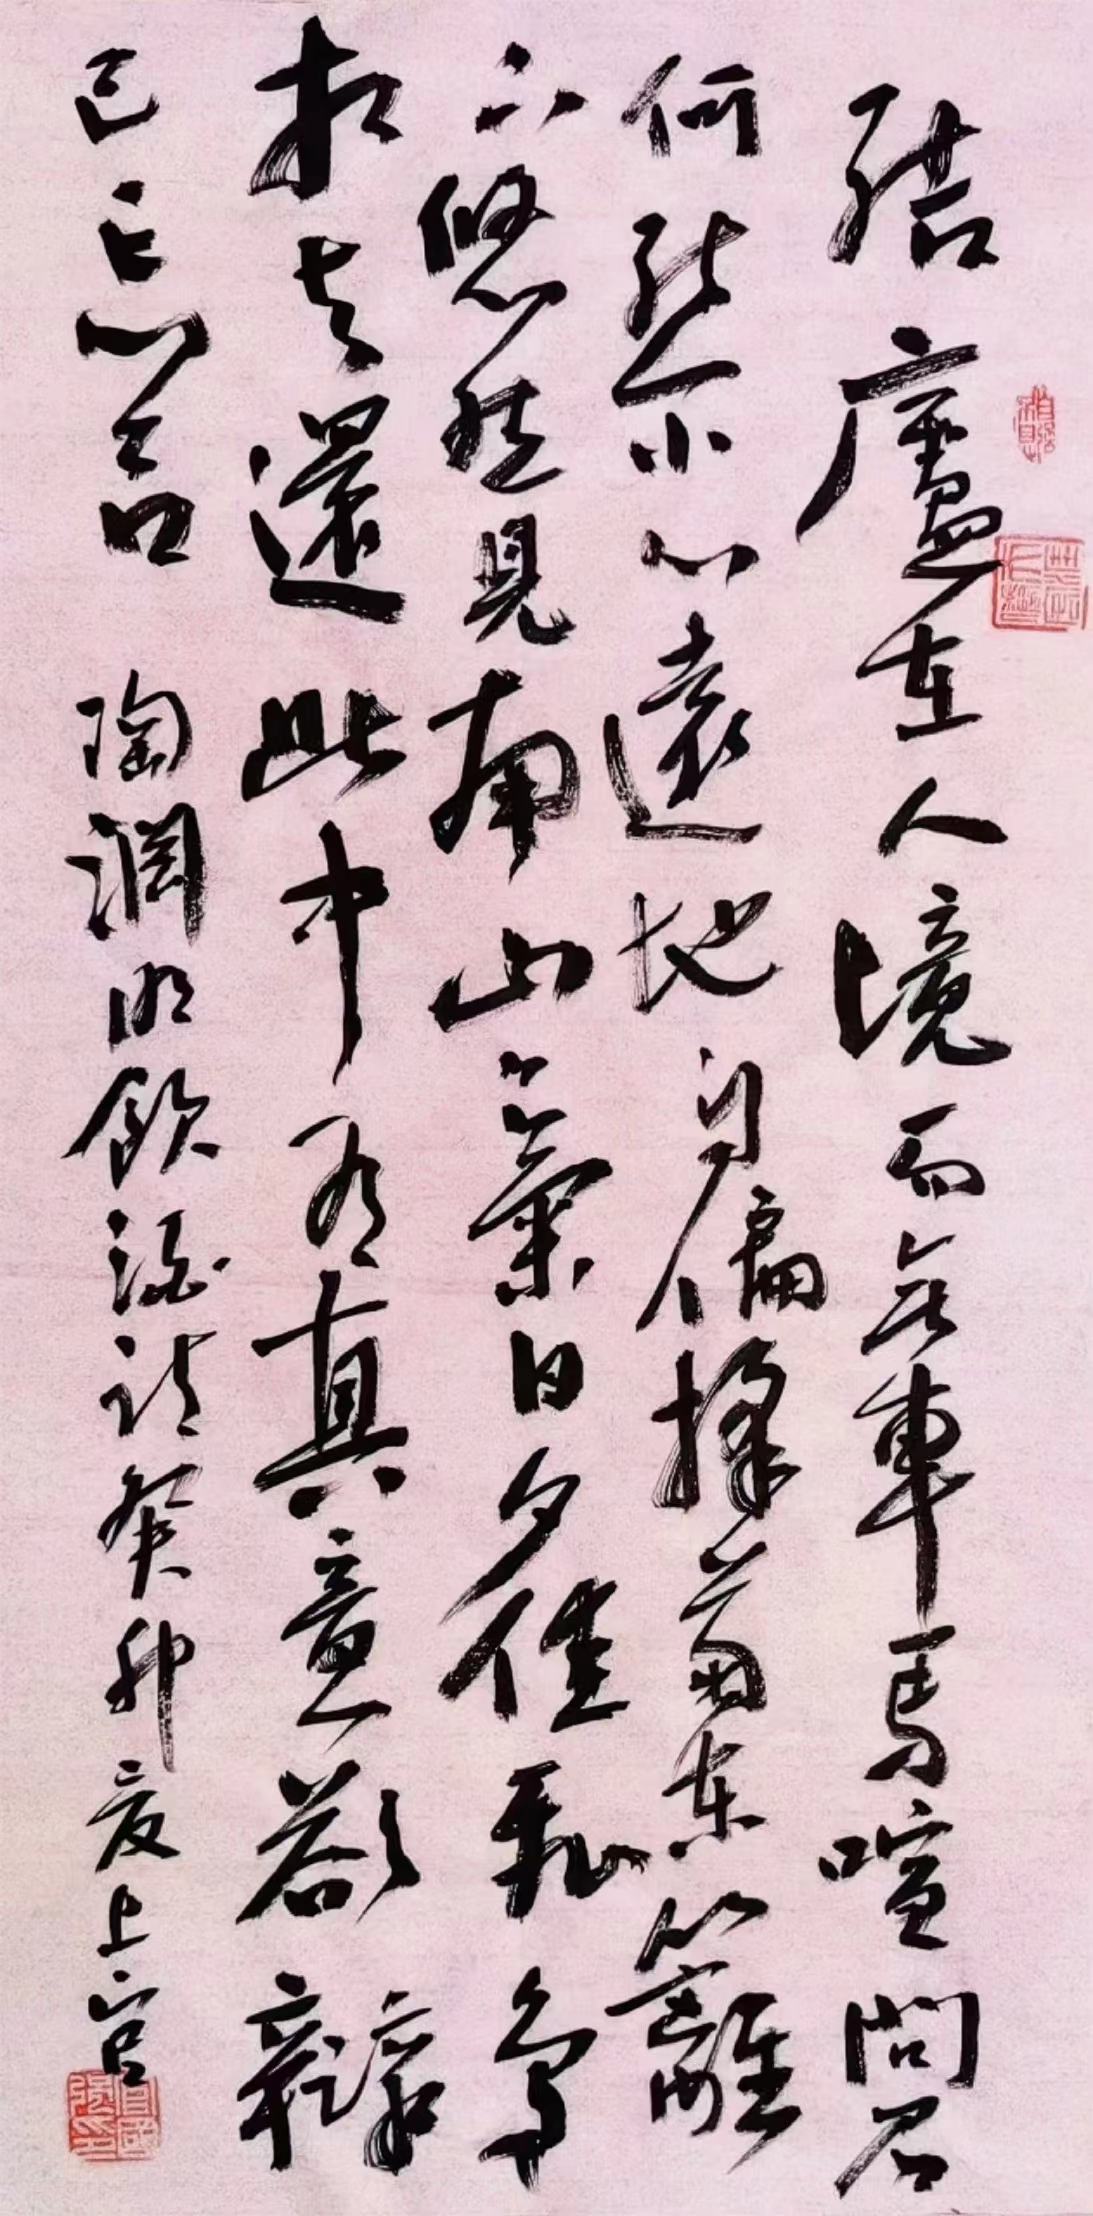 結廬在人境而無車馬喧問君
何能尔心遠地自偏採菊東籬
下悠然見南山氣日夕佳飛鳥
相与還此中有真意欲辯
已忘言 陶淵明飲酒詩癸卯夏上官